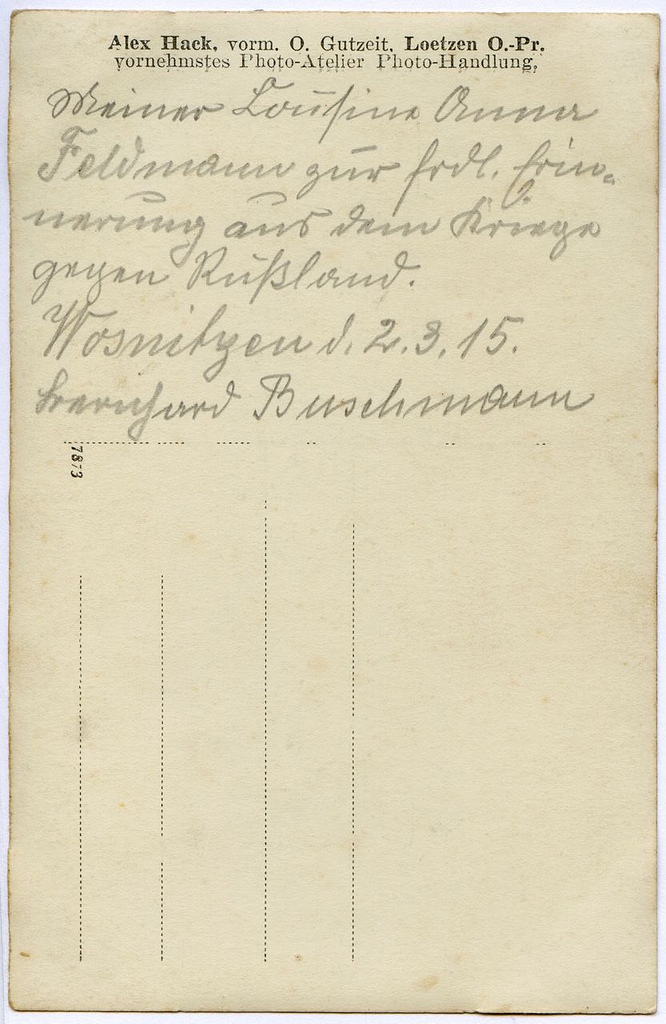 Alex Hack, vorm. O. Gutzeit, Loetzen O.-Pr.
vornehmstes Photo-Atelier Photo-Handlung.
Meiner Cousine Anna
Feldmann zur frdl. Erin-
nerung aus dem Kriege
gegen Rußland.
Wosnitzen d. 2.3.15.
Bernhard Buschmann
7873